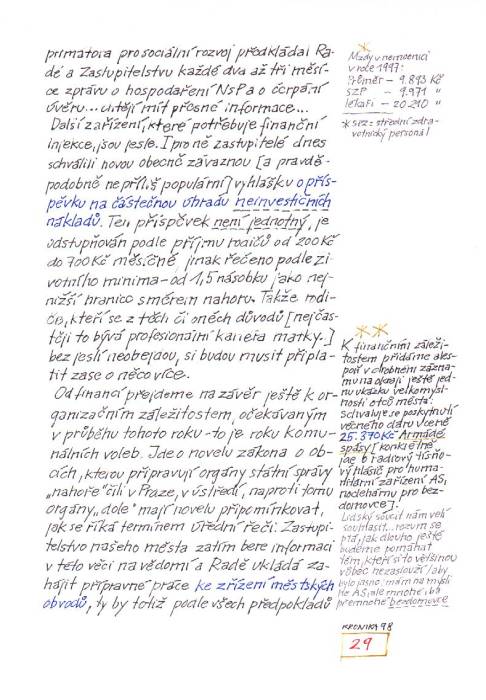 primátora pro sociální rozvoj předkládal Ra-
dě a Zastupitelstvu každé dva až tři měsí-
ce zprávu o hospodaření NsPa o čerpání
úvěru... chtějí mít přesné informace...
Další zařízení, které potřebuje finanční
injekce, jsou jesle. I pro ně zastupitelé dnes
schválili novou obecně závaznou [a pravdě-
podobně ne příliš populární] vyhlášku o přís-
pěvku na částečnou úhradu neinvestičních
nákladů. Ten příspěvek není jednotný, je
odstupňován podle příjmu rodičů od 200 Kč
do 700 Kč měsíčně, jinak řečeno podle ži-
votního minima - od 1,5 násobku jako nej-
nižší hranice směrem nahoru. Takže rodi-
če, kteří se z těch či oněch důvodů [nejčas-
těji to bývá profesionální kariéra matky.]
bez jeslí neobejdou, si budou muset připla-
tit zase o něco více.
Od financí přejdeme na závěr ještě k or-
ganizačním záležitostem, očekávaným
v průběhu tohoto roku - to je roku komu-
nálních voleb. Jde o novelu zákona o ob-
cích, kterou připravují orgány státní správy
„nahoře" čili v Praze, v ústředí, naproti tomu
orgány „dole" mají novelu připomínkovat,
jak se říká termínem úřední řeči. Zastupi-
telstvo našeho města zatím bere informaci
v této věci na vědomí a Radě ukládá za-
hájit přípravné práce ke zřízení městských
obvodů, ty by totiž podle všech předpokladů
Mzdy v nemocnici
v roce 1997:
Průměr - 9.893 Kč
SZP - 9.971 "
lékaři - 20.210 "
* SZP = střední zdra-
votnický personál
K finančním záleži-
tostem přidáme ales-
poň v drobném zázna-
mu na okraji ještě jed-
nu ukázku velkomysl-
nosti otců města:
Schvaluje se poskytnutí
věcného daru v ceně
25.370 Kč Armádě
spásy [konkrétně
jde o radiový tísňo-
vý hlásič pro huma-
nitární zařízení AS,
noclehárnu pro bez-
domovce].
Lidský soucit nám velí
souhlasit... rozum se
ptá, jak dlouho ještě
budeme pomáhat
těm, kteří si to většinou
vůbec nezaslouží /aby
bylo jasno: mám na mysli
ne AS, ale mnohé, ba
přemnohé bezdomovce
KRONIKA 98
29